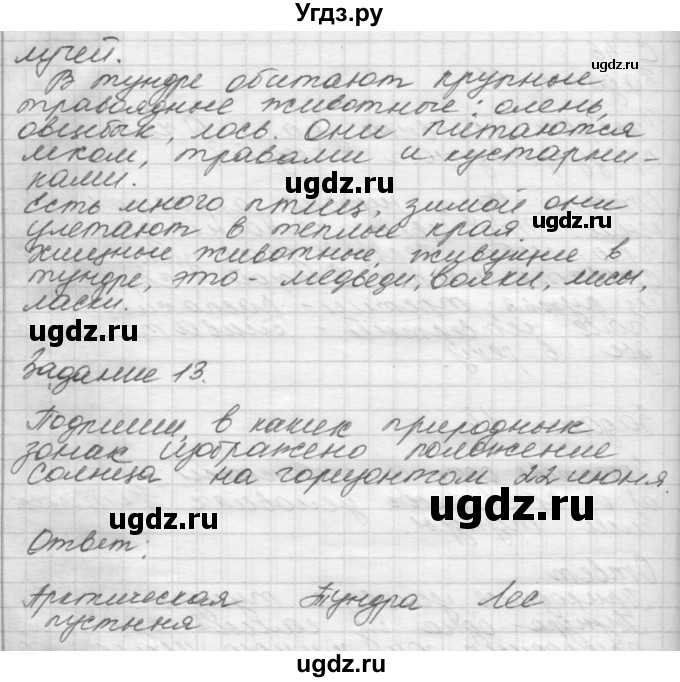 Угдз.ру
лучей.
©ugdz.ru
В тундре обитают крупные
травоядные животные: олень,
овцебык, лось. Они питаются
мхом, травами и кустарни-
ками.
ugdz.ru
Есть много птиц, зимой они
улетают в теплые края.
Хищные животные, живущие в
тундре, это - медведи, волки, лисы,
ласки.
ugdz.ru
Задание 13.
ugdz.ru
Подпиши, в каких природных
зонах изображено положение
солнца на горизонтом 22 июня.
ugdz.ru
ugdz.ru
Ответ:
ugdz.ru
Арктическая Тундра Лес
пустыня
ugdz.ru